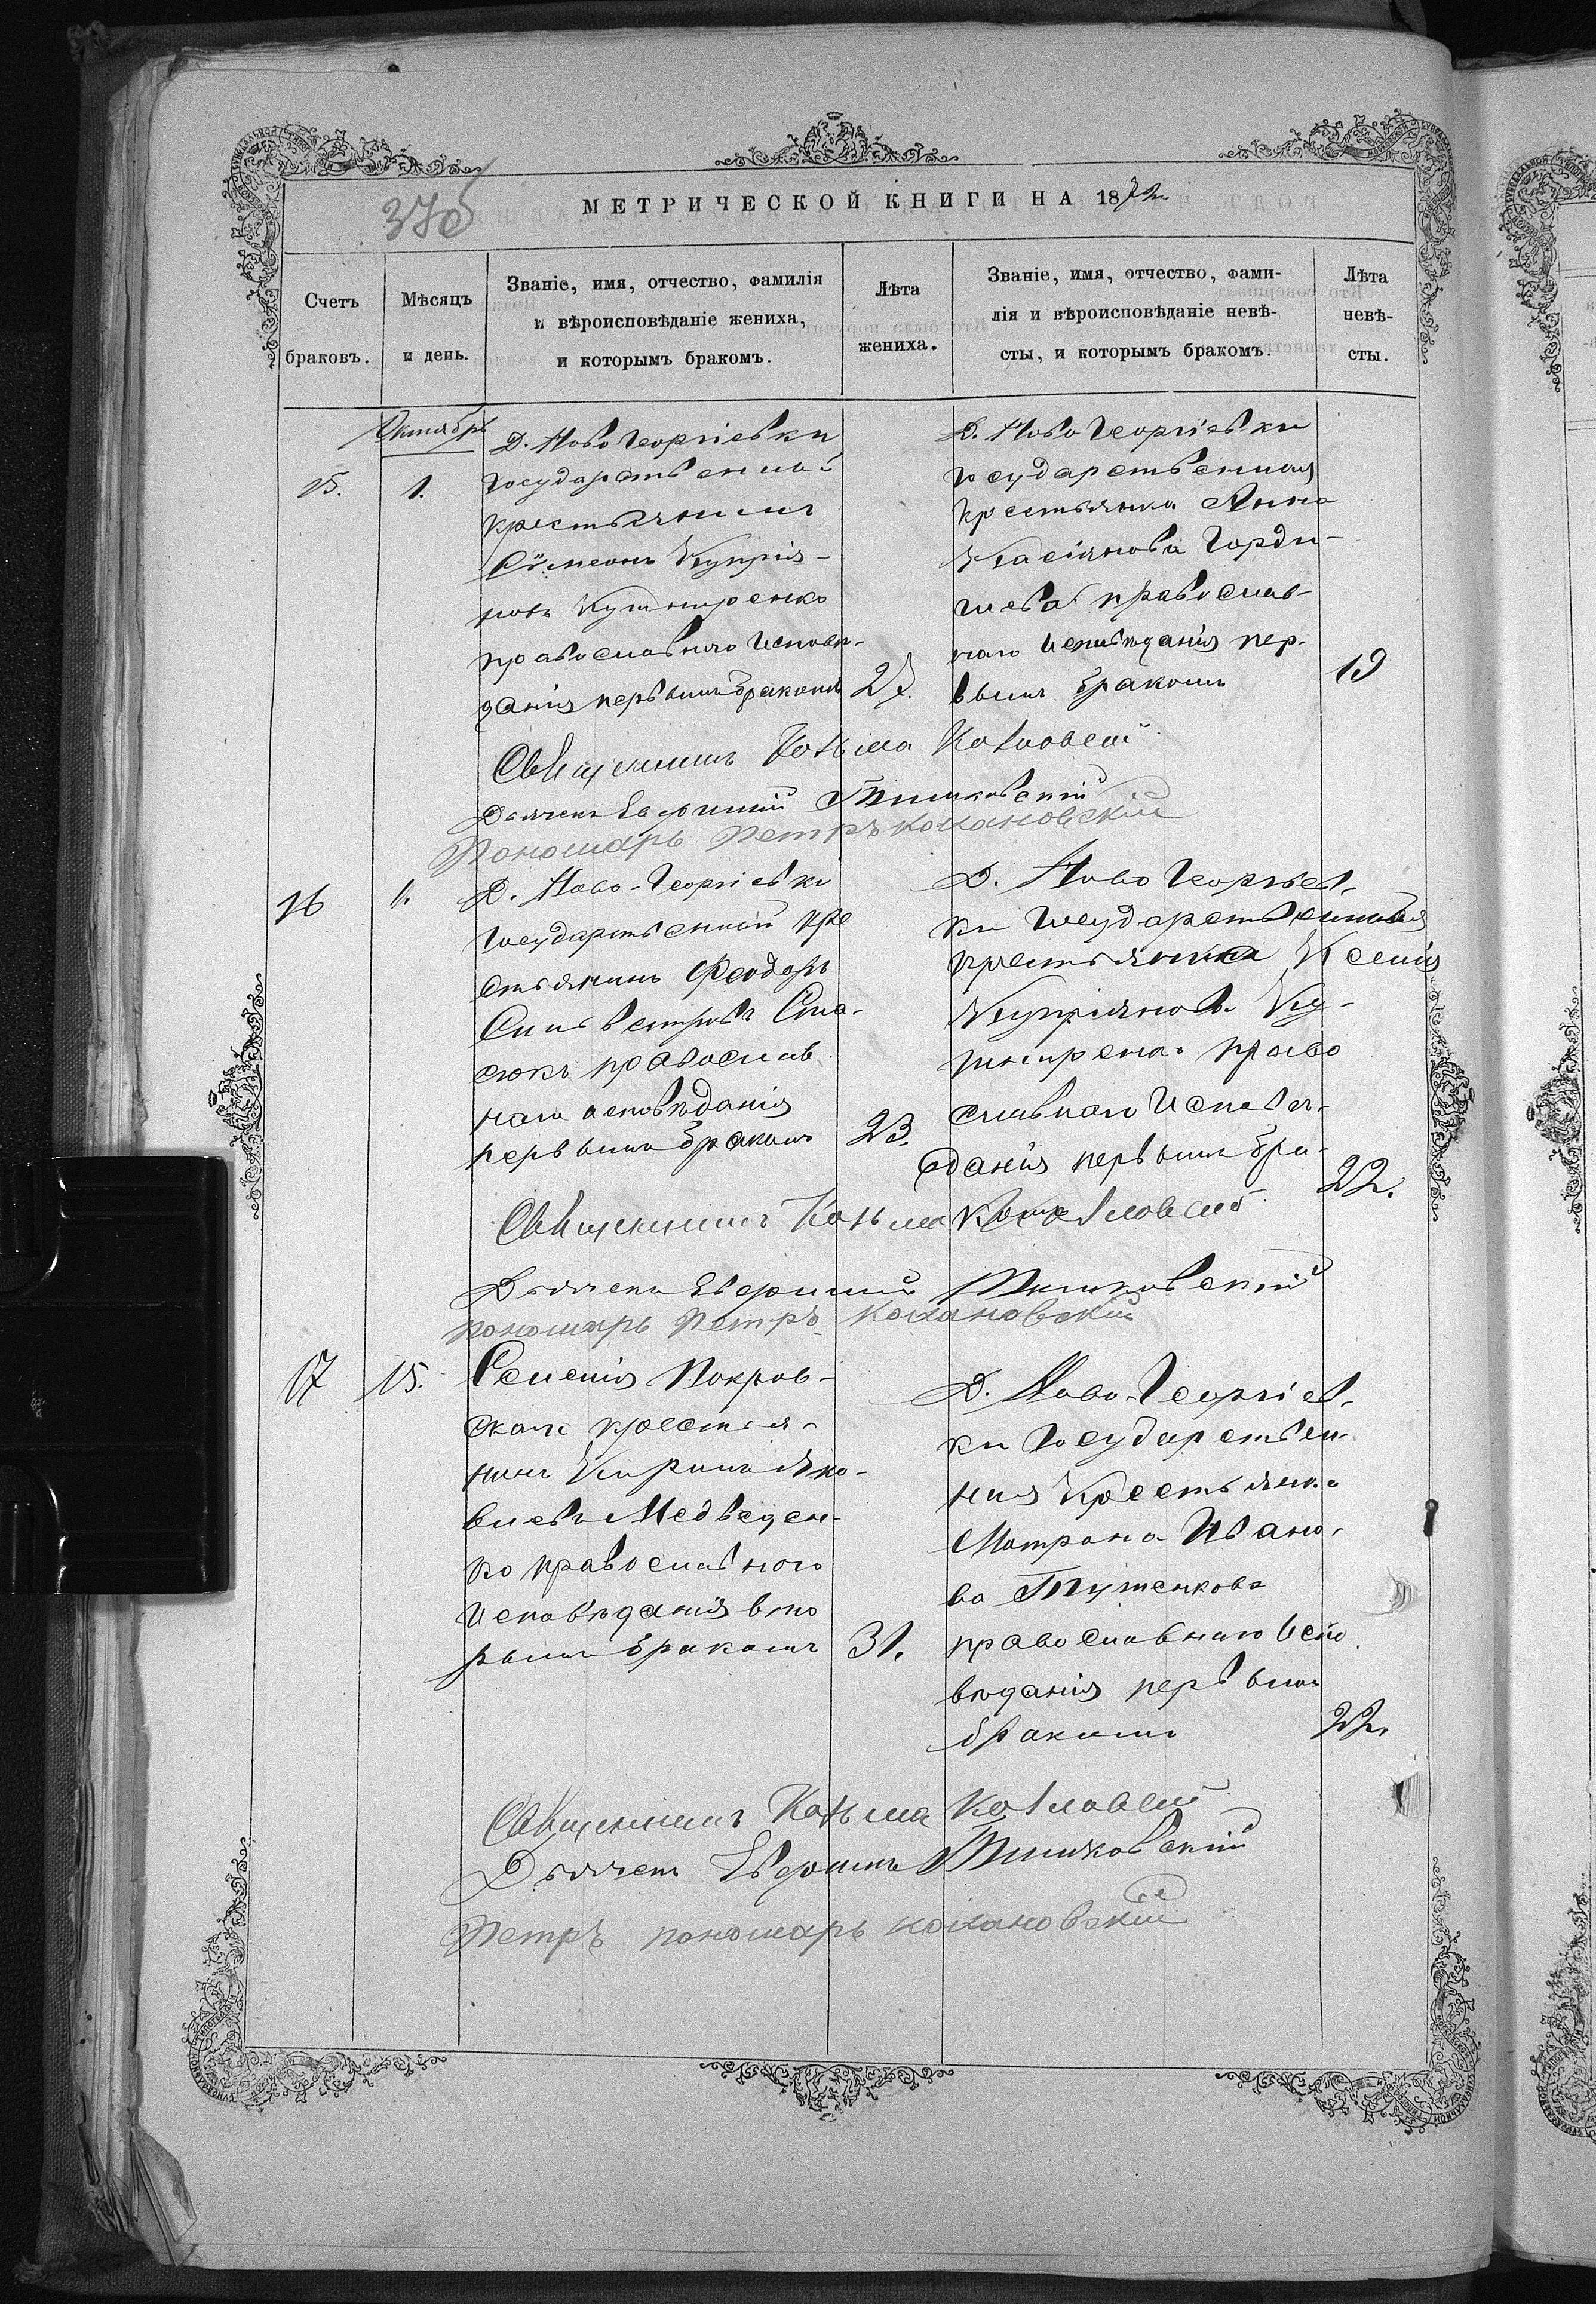 370
МЕТРИЧЕСКОЙ КНИГИ НА 1872
Счетъ браковъ.
Мѣсяцъ и день.
Званіе, имя, отчество, фамилія
и вѣроисповѣданіе жениха,
и которымъ бракомъ.
Лѣта жениха.
Званіе, имя, отчество, фами-
лія и вѣроисповѣданіе невѣ-
сты, и которымъ бракомъ.
Лѣта невѣ-
сты.
Октябрь
15.
1.
Д. Ново Георгіевки
Государственной
крестьянинъ
Сѵмеонъ Купрія-
новъ Кушниренко
православнаго Исповѣ-
данія первымъ бракомъ
27.
Д. Ново Георгіевки
государственная
крестьянка Анна
Касіянова Горди-
чева православ-
наго Исповѣданія пер-
вымъ бракомъ
19
Священникъ Козьма Козловскій
Дьячекъ Евфимій
Пономарь Петръ Кохановскій
16
1.
Д. Ново-Георгіевки
Государственный кре
стьянинъ Феодоръ
Сильвестровъ Ста-
сюкъ православ
наго исповѣданія
первымъ бракомъ
23.
Д. Ново Георгіев-
ки Государственная
крестьянка Ксенія
Купріянова Ку-
шниренко право
славнаго Исповѣ-
данія первымъ бра-
комъ
22.
Священникъ Козьма Козловскій
Дьячекъ Евфимій
пономарь Петръ Кохановскій
17
15.
Селенія Покров-
скаго крестья-
нинъ Кирилъ Яко-
влевъ Медведен-
ко православнаго
Исповѣданія вто
рымъ бракомъ
31.
Д. Ново-Георгіев-
ки Государствен
ная Крестьянка
Матрона Ивано-
ва
православнаго Испо
вѣданія первымъ
бракомъ
22.
Священникъ Козьма Козловскій
Дьячекъ Евфимій
Петръ пономарь Кохановскій